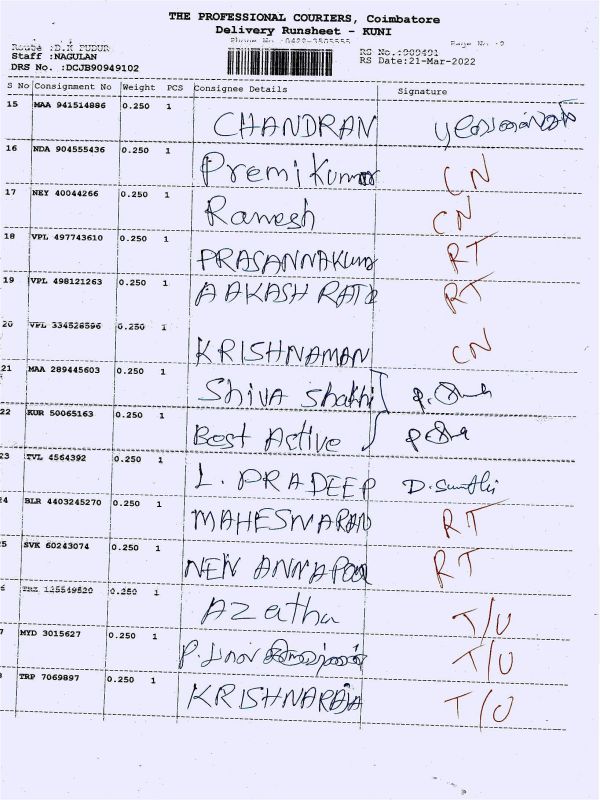 THE PROFESSIONAL COURIERS, Coimbatore
Delivery Runsheet - KUNI
Phone No :0422-3505555 Page No :2
Route :D.K PUDUR RS No.:909491
Staff :NAGULAN RS Date:21-Mar-2022
DRS No. :DCJB90949102
S No Consignment No Weight PCS Consignee Details Signature
15 MAA 941514886 0.250 1
CHANDRAN
16 NDA 904555436 0.250 1
Premikumar CN
17 NEY 40044266 0.250 1
Ramesh CN
18 VPL 497743610 0.250 1
PRASANNAKumar RT
19 VPL 498121263 0.250 1
AAKASH RT
20 VPL 334528596 0.250 1
KRISHNAMAN CN
21 MAA 289445603 0.250 1
Shiva Shakthi
22 KUR 50065163 0.250 1
Best Active
23 TVL 4564392 0.250 1
L. PRADEEP D. Sumathi
24 BLR 4403245270 0.250 1
MAHESWARAN RT
5 SVK 60243074 0.250 1
NEW ANNAPOO RT
6 TRZ 125549520 0.250 1
Azatha T/U
7 MYD 3015627 0.250 1
T/U
TRP 7069897 0.250 1
KRISHNARAJA T/U